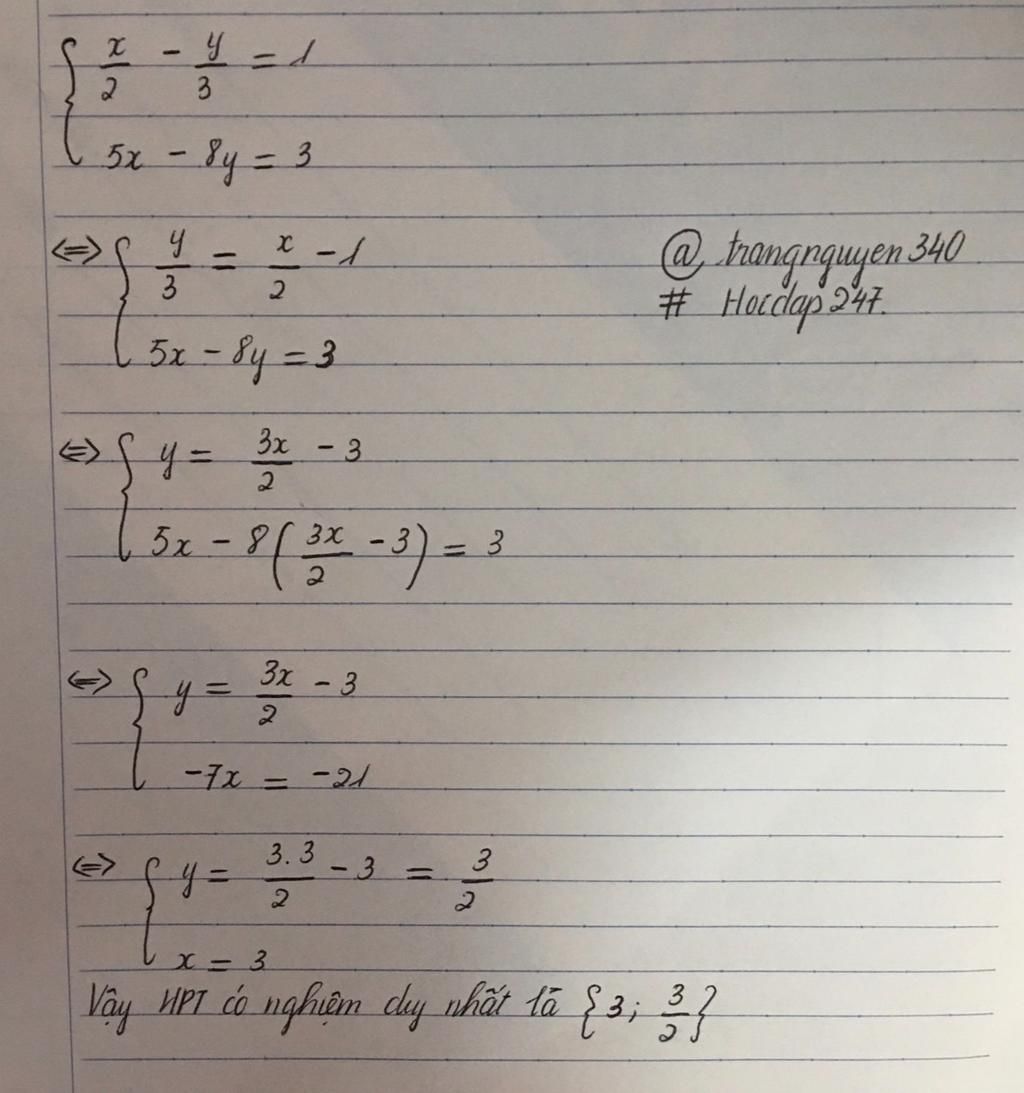 { x/2 - y/3 = 1
5x - 8y = 3
⇔ { y/3 = x/2 - 1
5x - 8y = 3
@ trangnguyen340
# Hoidap247.
⇔ { y = 3x/2 - 3
5x - 8(3x/2 - 3) = 3
⇔ { y = 3x/2 - 3
-7x = -21
⇔ { y = 3.3/2 - 3 = 3/2
x = 3
Vậy HPT có nghiệm duy nhất là {3; 3/2}